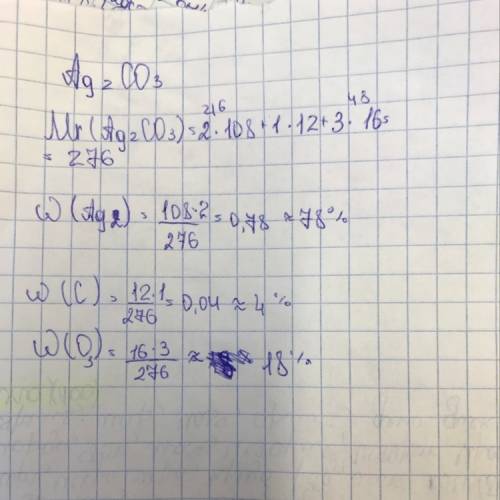 Ag₂CO₃
216 48
Mr(Ag₂CO₃)=2·108+1·12+3·16=
= 276
ω(Ag₂) = 108·2/276 = 0,78 ≈ 78%
ω(C) = 12·1/276 = 0,04 ≈ 4%
ω(O₃) = 16·3/276 ≈ 18%